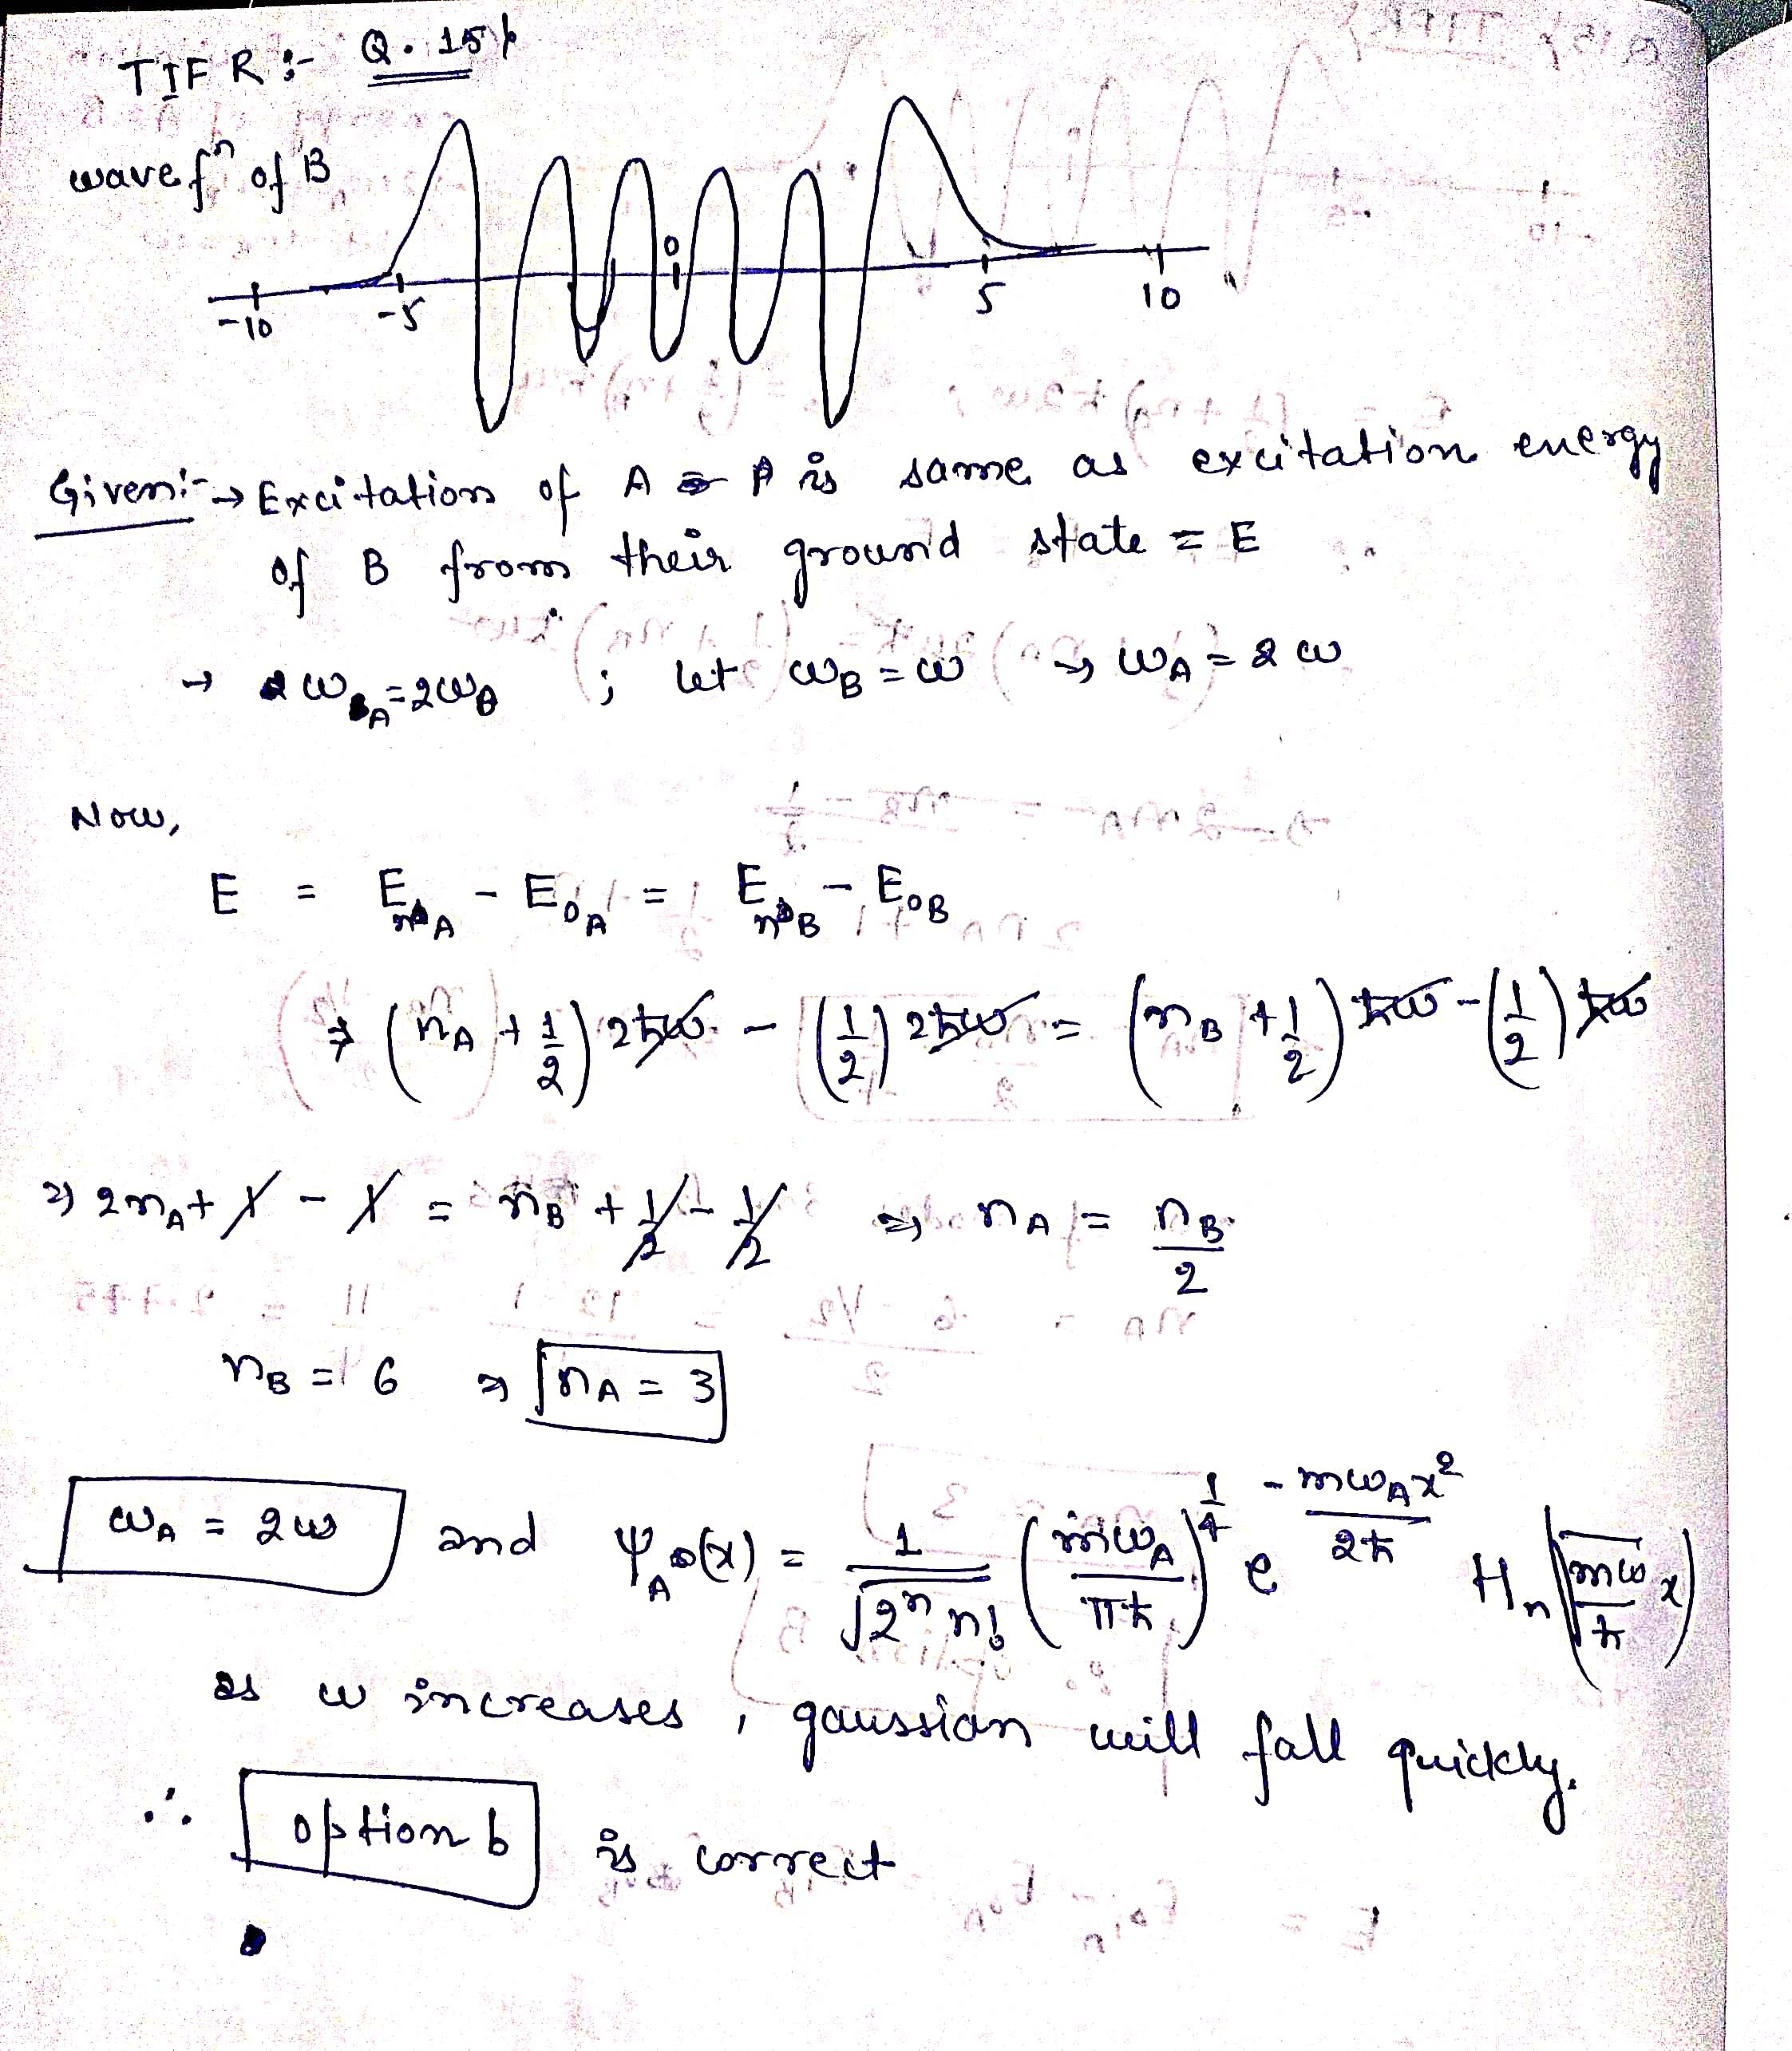 TIFR :- Q. 15
wave fⁿ of B
0
-10 -5 5 10
Given:- → Excitation of A is same as excitation energy
of B from their ground state = E
→ ω_A = 2ω_B ; let ω_B = ω ⇒ ω_A = 2ω
Now,
E = E_{nA} - E_{0A} = E_{nB} - E_{0B}
⇒ (n_A + 1/2) 2ħω - (1/2) 2ħω = (n_B + 1/2) ħω - (1/2) ħω
⇒ 2n_A + 1 - 1 = n_B + 1/2 - 1/2 ⇒ n_A = n_B/2
n_B = 6 ⇒ n_A = 3
ω_A = 2ω and Ψ_A(x) = 1/√(2ⁿ n!) (mω_A/πħ)^{1/4} e^{-mω_A x²/2ħ} H_n(√(mω/ħ) x)
as ω increases, gaussian will fall quickly.
∴ option b is correct